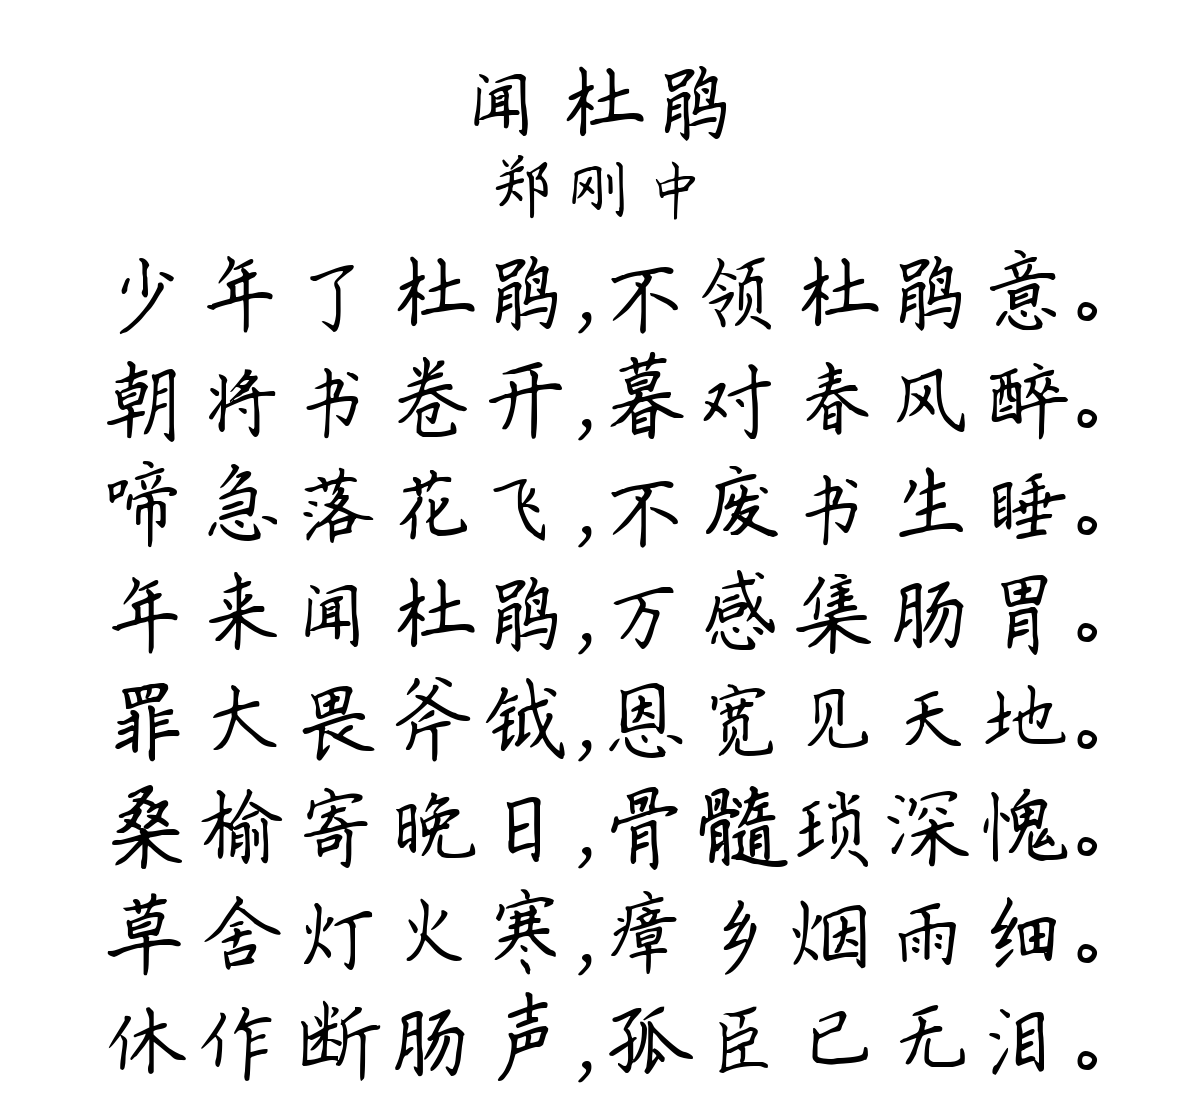 闻杜鹃
郑刚中
少年了杜鹃,不领杜鹃意。
朝将书卷开,暮对春风醉。
啼急落花飞,不废书生睡。
年来闻杜鹃,万感集肠胃。
罪大畏斧钺,恩宽见天地。
桑榆寄晚日,骨髓琐深愧。
草舍灯火寒,瘴乡烟雨细。
休作断肠声,孤臣已无泪。